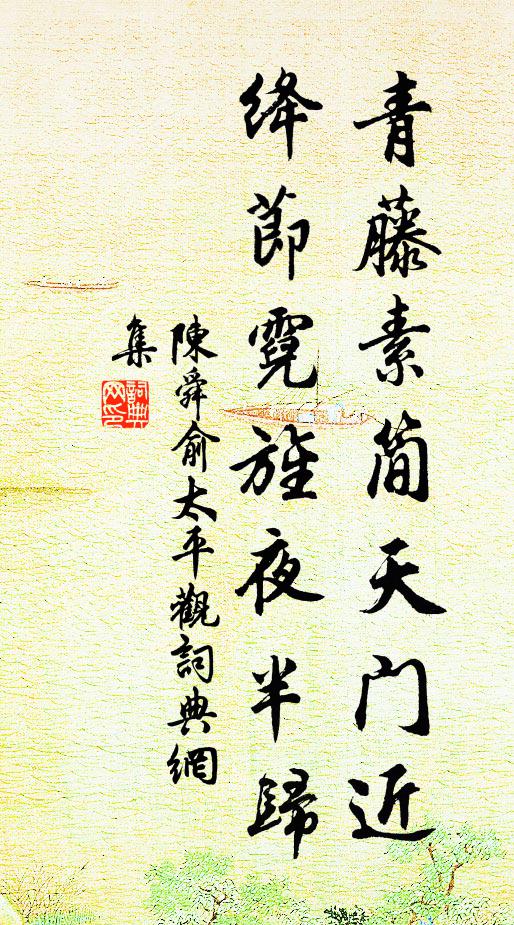 青藤素简天门近
绛节霓旌夜半歸
陳舜俞太平觀詞典網
集
詞典網印